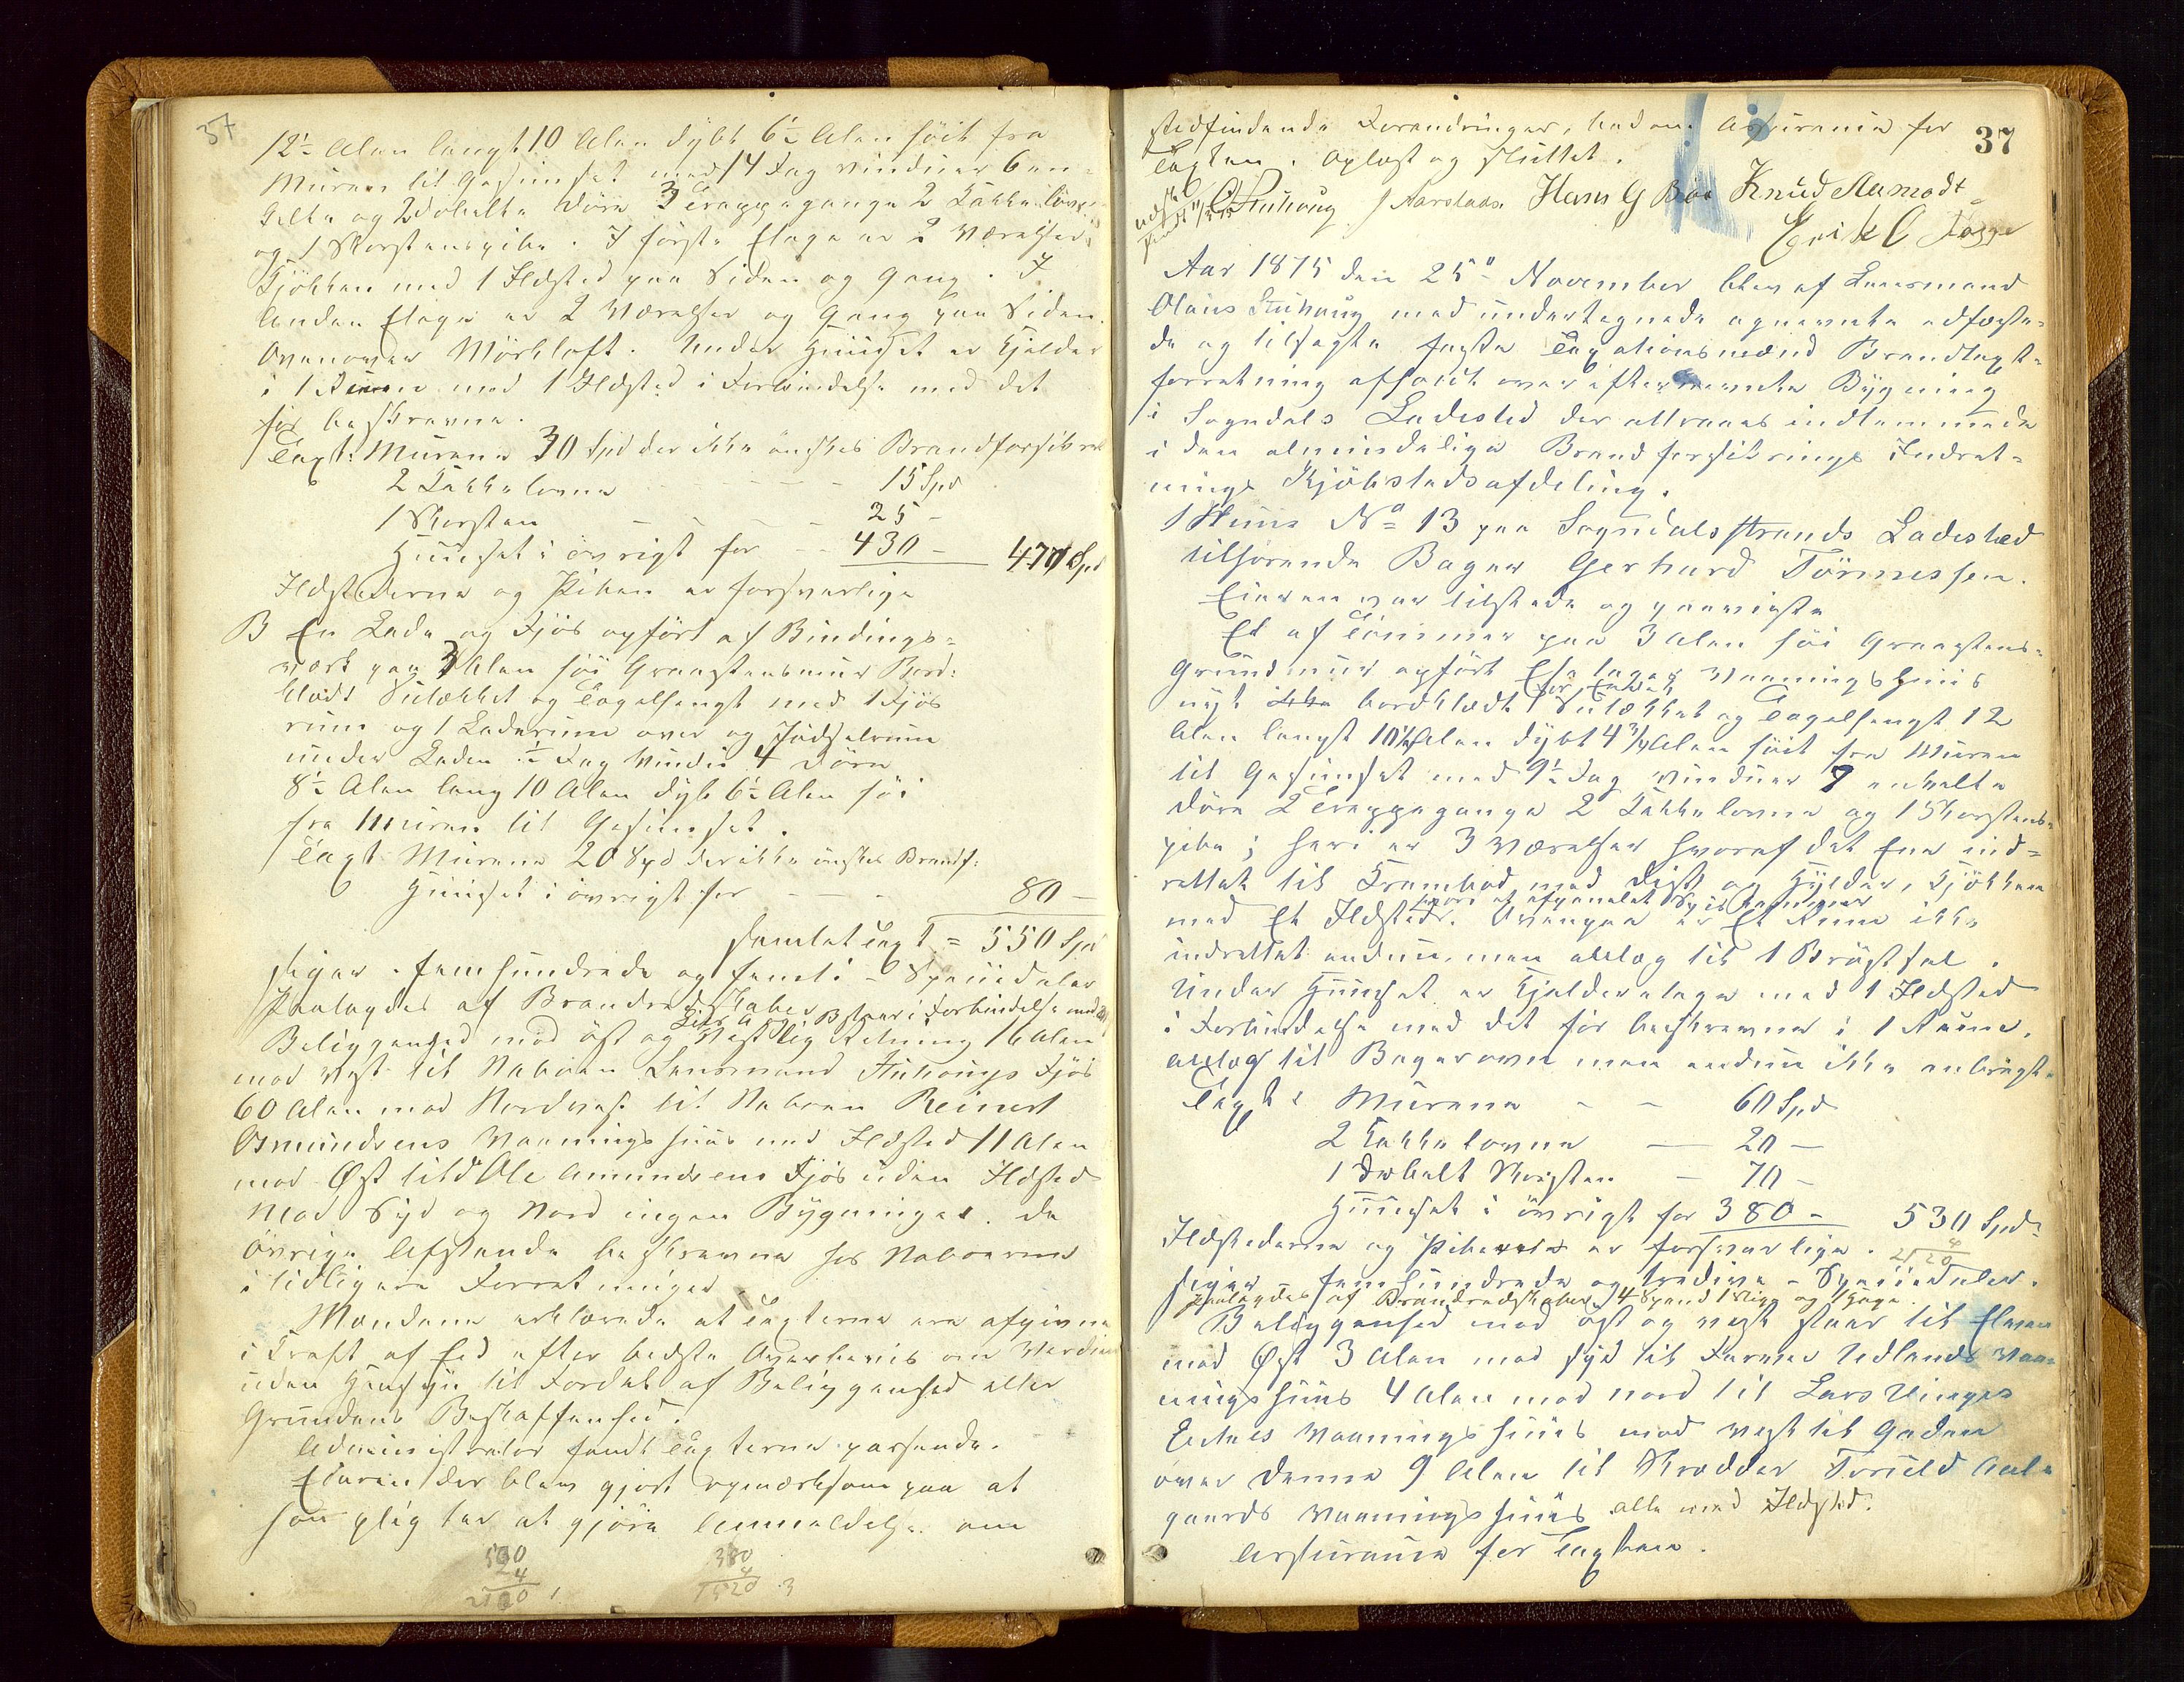 37
12½ Alen langt 10 Alen dybt 6½ Alen höit fra
Muren til Gesimset med 14 Fag Vinduer 6 en-
kelte og 2 dobelte Döre 3 Trappegange 2 Kakkelovne
og 1 Skorstenspibe. I förste Etage er 2 Værelser
Kjökken med 1 Ildsted paa Siden og Gang. I
Anden Etage er 2 Værelser og Gang paa Siden.
Ovenover Mörkloft. Under Huuset er Kjelder
i 1 Rum med 1 Ildsted i Forbindelse med det
för beskrevne.
Taxt: Murene 30 Spd der ikke önskes Brandforsikret
2 Kakkelovne - - - 15 Spd
1 Skorsten - - - 25 -
Huuset i övrigt for - - 430 - 470 Spd
Ildstederne og Piben er forsvarlige
B En Lade og Fjös opfört af Bindings-
værk paa 3 Alen höi Graastensmuur Bord-
klædt Sutækket og Tagelhengt med 1 Fjös
rum og 1 Laderum over og Födselrum
under Laden ½ Fag Vindu 4 Döre
8½ Alen lang 10 Alen dyb 6½ Alen höi
fra Muren til Gesimset.
Taxt Murene 20 Spd der ikke önskes Brandf:
Huuset i övrigt for - - - 80 -
samlet Taxt = 550 Spd
siger - femhundrede og femti - Speciedaler
Paalagdes af Brandredskaber
Litr A og B staar i Forbindelse med
Beliggenhed mod öst og Vestlig Retning 16 Alen
mod Vest til Naboen Lensmand Stuhougs Fjös
60 Alen mod Nordvest til Naboen Reinert
Osmundsens Vaaningshuus med Ildsted 11 Alen
mod Øst til Ole Amundsens Fjös uden Ildsted
Mod Syd og Nord ingen Bygninger. De
övrige Afstande beskrevne hos Naboerne
i tidligere Forretninger.
Mændene erklærede at Taxterne ere afgivne
i Kraft af Eed efter bedste Overbeviis om Værdien
uden Hensyn til Fordel af Beliggenhed eller
Grundens Beskaffenhed.
Administrator fandt Taxterne passende.
Eieren der blev gjort opmærksom paa at
han pligter at gjöre Anmeldelse om
530
4
2120 1
380
4
1520 3
37
stedfindende Forandringer, bad om Assurance for
Taxten. Oplæst og sluttet.
O Stuhoug J Aarstads Hans G Böe Knud Aamodt
Erik O Fogge
Aar 1875 den 25de November blev af Lensmand
Olaus Stuhoug med undertegnede opnevnte edfæste-
de og tilsagte faste Taxationsmænd Brandtaxt-
forretning afholdt over efternevnte Bygning
i Sogndals Ladested der attraaes indlemmede
i den almindelige Brandforsikrings Indret-
nings Kjöbstadsafdeling.
1 Huus No 13 paa Sogndalsstrands Ladested
tilhörende Bager Gerhard Törnessen.
Eieren var tilstede og paaviste
Et af Tömmer paa 3 Alen höi Graastens-
Grundmur opfört Etages Vaaningshuus
nyt bordklædt Sutækket og Tagelhengt 12
Alen langt 10½ Alen dybt 4¾ Alen höit fra Muren
til Gesimset med 9½ Fag Vinduer 7 enkelte
Döre 2 Trappegange 2 Kakkelovne og 1 Skorstens-
pibe; heri er 3 Værelser hvoraf det Ene ind-
rettet til Krambod med Disk og Hylder, Kjökken
hvori et afpanelet Spiskammer
med Et Ildsted. Ovenpaa er Et Rum ikke
indrettet endnu, men anlæg til 1 Brystfal.
Under Huuset er Kjelderetage med 1 Ildsted
i Forbindelse med det för beskrevne i 1 Rum,
anlæg til Bagerovn men endnu ikke anbragt.
Taxt: Murene - - 60 Spd
2 Kakkelovne - 20 -
1 Dobelt Skorsten - 70 -
Huuset i övrigt for 380 - 530 Spd
Ildstederne og Piberne er forsvarlige.
siger - femhundrede og tredive - Speciedaler.
Paalagdes af Brandredskaber 4 Spand 1 Stige og 1 Hage.
Beliggenhed mod öst og vest staar til Elven
mod Øst 3 Alen mod syd til Farver Udlands Vaa-
ningshuus 4 Alen mod nord til Lars Vinges
Enkes Vaaningshuus mod vest til Gaden
over denne 9 Alen til Skrædder Torveld Aale
gaards Vaaningshuus alle med Ildsted.
Assurance for Taxten.